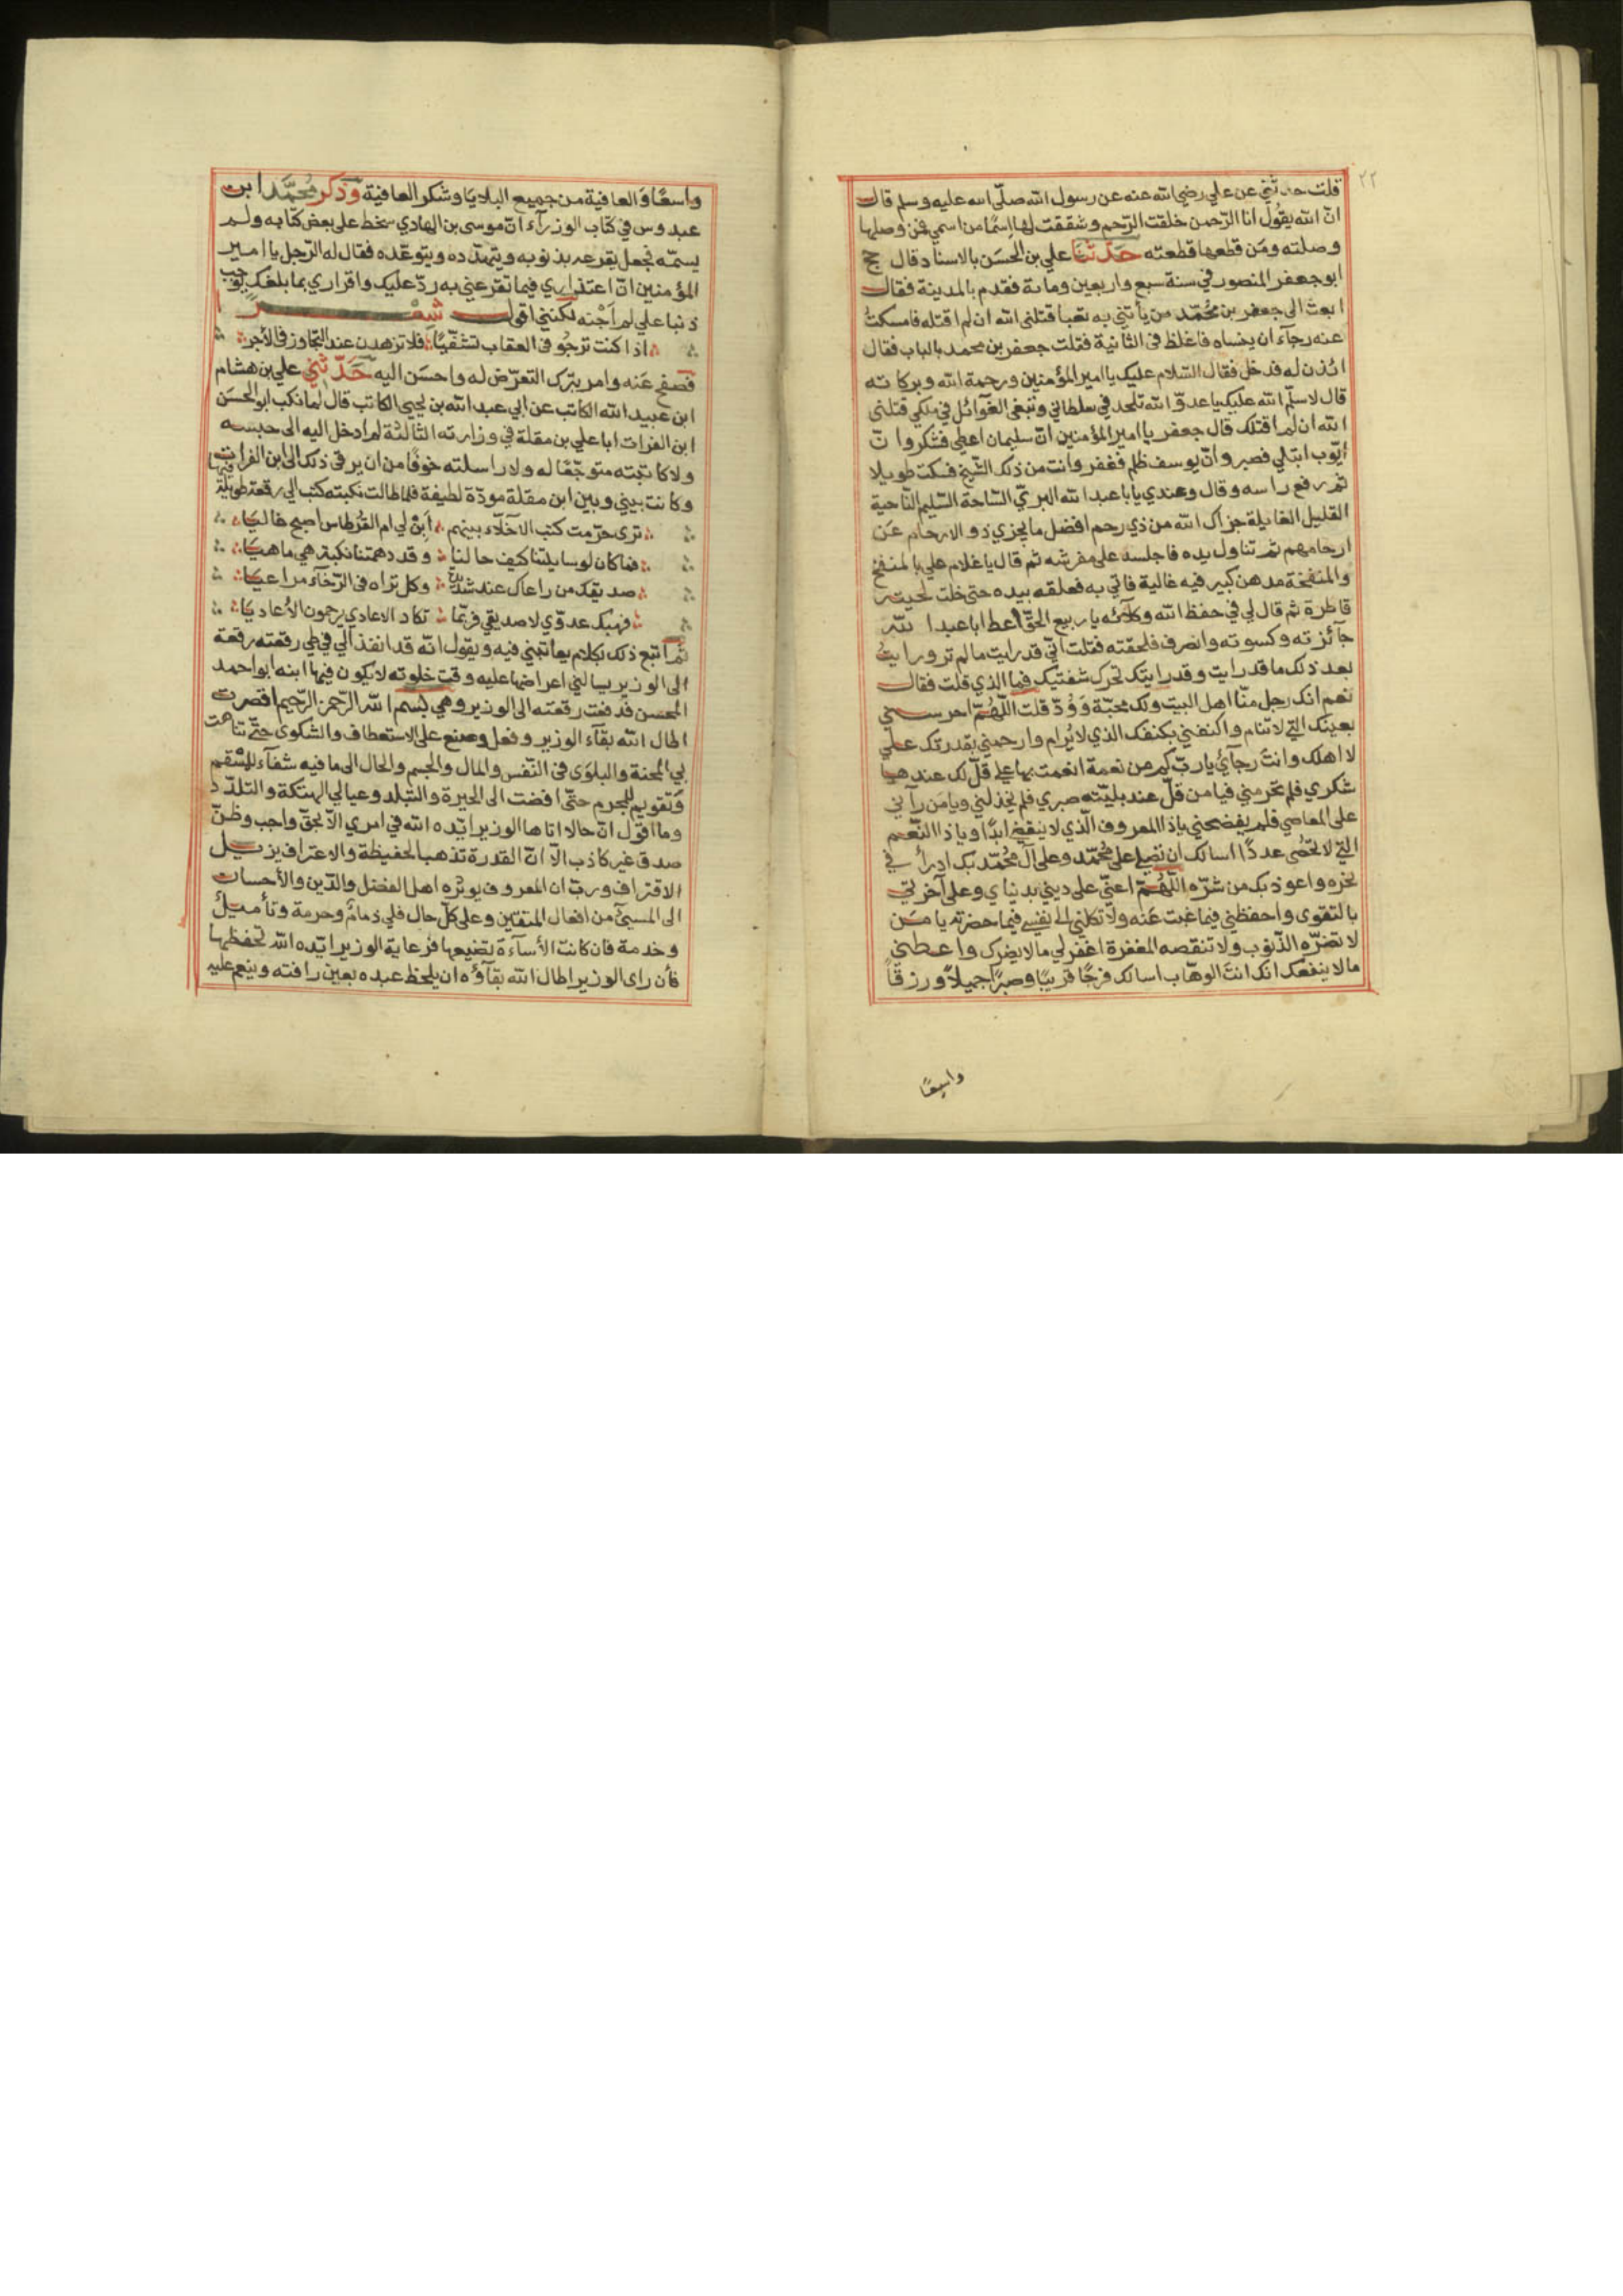 ٢٢
قلت حدثني عن علي رضي الله عنه عن رسول الله صلى الله عليه وسلم قال
انّ الله يقُول انا الرّحمن خلقت الرّحم وشققت لها اسمًا من اسمي فمن وصلها
وصلته ومَن قطعها قطعته حَدّثنا علي بن الحسَن بالاسناد قال حج
ابو جعفر المنصور في سنة سبع واربعين ومائة فقدم بالمدينة فقال
ابعث الى جعفر بن محُمّد من يأتيني به تعبا قتلنى الله ان لم اقتله فامسكتُ
عنه رجآء ان ينساه فاغلظ فى الثّانية فقلت جعفر بن محمد بالباب فقال
ائذن له فدخل فقال السّلام عليك يا امير المؤمنين ورحمة الله وبركاته
قال لا سلّم الله عليك يا عدوّ الله تلحد في سلطاني وتبغى الغَوآئل في ملكي قتلنى
الله ان لم اقتلك قال جعفر يا امير المؤمنين انّ سليمان اعطى فشكر وانّ
ايّوب ابتلي فصبر وانّ يوسف ظلم فغفر وانت من ذلك الشّيخ فسكت طويلا
ثم رفع راسه وقال وعندي يا ابا عبد الله البرىّ السّاحة السّليم النّاحية
القليل الغايلة جزاك الله من ذي رحم افضل ما يجزي ذو الارحام عَن
ارحامهم ثم تناول يده فاجلسه على مفرشه ثم قال يا غلام علي بالمنفخ
والمنفخة مدهن كبير فيه غالية فاتي به فعلقه بيده حتى خلت لحيته
قاطرة ثم قال لي في حفظ الله وكلآئه يا ربيع الحقْ اعط ابا عبد الله
جآئزته وكسوته وانصرف فلحقته فقلت انّي قد رايت ما لم تر ورايتُ
بعد ذلك ما قد رايت وقد رايتك تحرك شفتيك فما الذي قلت فقال
نعم انك رجل منّا اهل البيت ولك محبّة وَوُدّ قلت اللّهُمّ احرسني
بعينك التي لا تنام واكنفني بكنفك الذي لا يُرام وارحمني بقدرتك علي
لا اهلك وانتَ رجآئي يا ربّ كم من نعمة انعمت بها علي قلّ لك عندها
شكري فلم تحرمني فيا من قلّ عند بليّته صبري فلم يخذلني ويا مَن رآني
على المعاصي فلم يفضحني يا ذا المعروف الّذي لا ينقضي ابدًا ويا ذا النّعم
التي لا تحُصى عددًا اسالك ان تصلي على محُمّد وعلى آل محُمّد بك ادرأ في
نحره واعوذ بك من شرّه اللّهُمّ اعنّي على ديني بدنياي وعلى آخرتي
بالتقوى واحفظني فيما غبت عَنه ولا تكلني الى نفسي فيما حضرته يا مَن
لا تضرّه الذّنوب ولا تنقصه المغفرة اغفر لي ما لا يضرك واعطني
ما لا ينفعك انك انتَ الوهّاب اسالك فرجًا قريبًا وصبرًا جميلاً ورزقًا
واسعًا
واسعًا وَالعافية من جميع البلايَا وشكر العافية وَذكر مُحمّد ابن
عبدوس في كتاب الوزرآء انّ موسى بن الهادي سخط على بعض كتّابه ولم
يسمّه فجعل يقرعه بذنوبه ويتهدّده ويتوعّده فقال له الرّجل يا امير
المؤمنين انّ اعتذاري فيما تقرعني به ردّ عليك واقراري بما بلغك يوجب
ذنبا علي لم اَجْنه لكننى اقول شعْر
اذا كنت ترجُو فى العقاب تشفّيًا فلا تزهدن عند التجاوز فى الأجر
فصفح عَنه وامر بترك التعرّض له واحسَن اليه حَدّثني علي بن هشام
ابن عبيد الله الكاتب عن ابي عبد الله بن يحيى الكاتب قال لما نكب ابو الحسَن
ابن الفرات ابا علي بن مقلة في وزارته الثالثة لم ادخل اليه الى حبسه
ولا كاتبته متوجّعًا له ولا راسلته خوفًا من ان يرقى ذلك الى ابن الفرات
وكانت بيني وبين ابن مقلة مودّة لطيفة فلما طالت نكبته كتب الي رقعة طويلة فيها
ترى حرّمت كتب الاخلّاء بينهم اَبنْ لي ام القرْطاس اصبح غاليًا
فما كان لو سايلتنا كيف حالنا وقد دهمتنا نكبة هي ماهيَا
صديقك من راعاك عند شدّة وكل تراه فى الرّخآء مراعيَا
فهبك عدوّي لا صديقي فربّما تكاد الاعادي يرحمون الأعاديَا
ثمّ اتبع ذلك بكلام يعاتبني فيه ويقول انّه قد انفذ الي في طي رقعته رقعة
الى الوزير يسالني اعراضها عليه وقت خلوته لا يكون فيها ابنه ابو احمد
المحسن فدفعت رقعته الى الوزير وهي بسم الله الرّحمن الرّحيم اقصرت
اطال الله بقآء الوزير وفعل وصنع على الاستعطاف والشكوى حتّى تناهت
بي المحنة والبلوَى فى النّفس والمال والجسم والحال الى ما فيه شفآء للسّقم
وتقويم للمجرم حتّى افضت الى الحيرة والتبلد وعيالي الهتكة والتلدّد
وما اقول انّ حالا اتاها الوزير ايّده الله في امري الاّ بحقّ واجب وظنّ
صدق غير كاذب الاّ انّ القدرة تذهب الحفيظة والاعتراف يزيل
الاقتراف وربّ ان المعروف يوثره اهل الفضل والدّين والأحسان
الى المسيئ من افعال المتقين وعلى كلّ حال فلي ذمامٌ وحرمة وتأميلٌ
وخدمة فان كانت الأساءة تضيعها فرعاية الوزير ايّده الله تحفظها
فأن راى الوزير اطال الله بقآؤه ان يلحظ عبده بعين رافته وينعم عليه